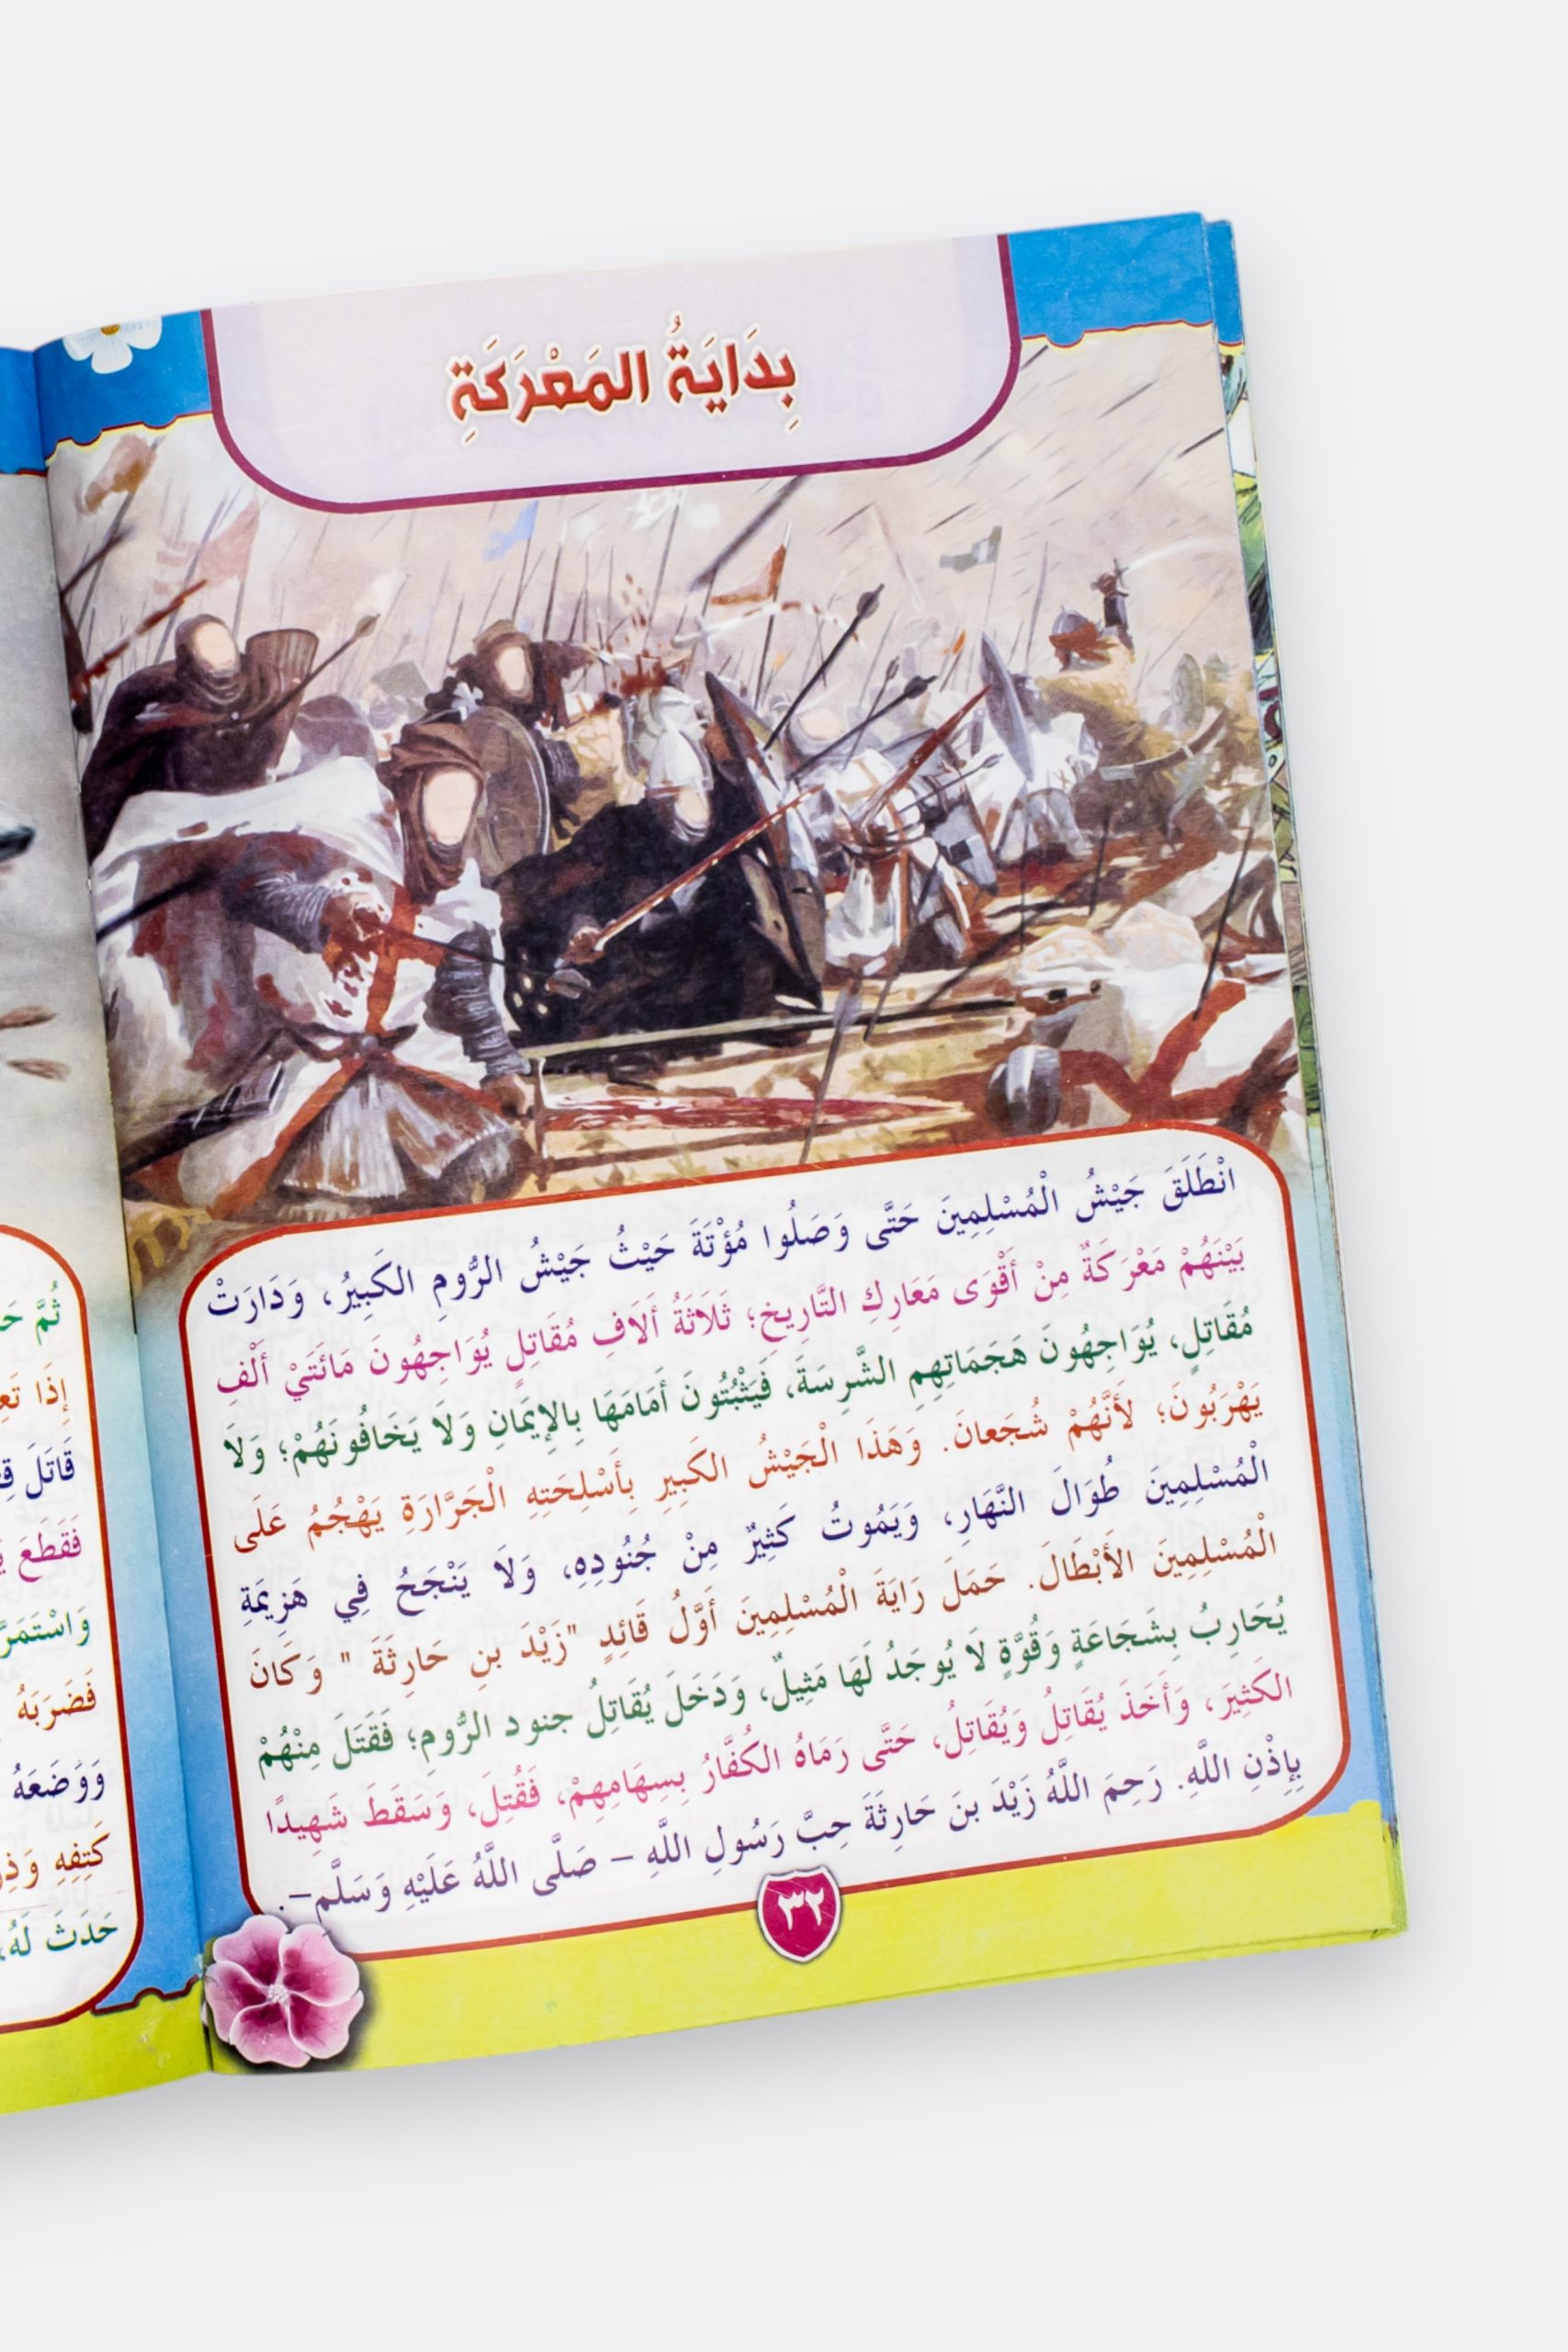 بِدَايَةُ المَعْرَكَةِ
انْطَلَقَ جَيْشُ الْمُسْلِمِينَ حَتَّى وَصَلُوا مُؤْتَةَ حَيْثُ جَيْشُ الرُّومِ الكَبِيرُ، وَدَارَتْ
بَيْنَهُمْ مَعْرَكَةٌ مِنْ أَقْوَى مَعَارِكِ التَّارِيخِ؛ ثَلَاثَةُ أَلَافِ مُقَاتِلٍ يُوَاجِهُونَ مَائَتَيْ أَلْفِ
مُقَاتِلٍ، يُوَاجِهُونَ هَجَمَاتِهِمِ الشَّرِسَةَ، فَيَثْبُتُونَ أَمَامَهَا بِالإِيمَانِ وَلَا يَخَافُونَهُمْ؛ وَلَا
يَهْرَبُونَ؛ لأَنَّهُمْ شُجَعانَ. وَهَذَا الْجَيْشُ الكَبِيرِ بِأَسْلِحَتِهِ الْجَرَّارَةِ يَهْجُمُ عَلَى
الْمُسْلِمِينَ طُوَالَ النَّهَارِ، وَيَمُوتُ كَثِيرٌ مِنْ جُنُودِهِ، وَلَا يَنْجَحُ فِي هَزِيمَةِ
الْمُسْلِمِينَ الأَبْطَالَ. حَمَلَ رَايَةَ الْمُسْلِمِينَ أَوَّلُ قَائِدٍ "زَيْدَ بنِ حَارِثَةَ " وَكَانَ
يُحَارِبُ بِشَجَاعَةٍ وَقُوَّةٍ لَا يُوجَدُ لَهَا مَثِيلٌ، وَدَخَلَ يُقَاتِلُ جنود الرُّومِ؛ فَقَتَلَ مِنْهُمْ
الكَثِيرَ، وَأَخَذَ يُقَاتِلُ وَيُقَاتِلُ، حَتَّى رَمَاهُ الكُفَّارُ بِسِهَامِهِمْ، فَقُتِلَ، وَسَقَطَ شَهِيدًا
بِإِذْنِ اللَّهِ. رَحِمَ اللَّهُ زَيْدَ بنَ حَارِثَةَ حِبَّ رَسُولِ اللَّهِ – صَلَّى اللَّهُ عَلَيْهِ وَسَلَّم–.
٣٢
ثُمَّ
إِذَا
قَاتَلَ
فَقَطَعَ
فَضَرَبَهُ
وَوَضَعَهُ
كَتِفِهِ
حَدَثَ لَهُ،